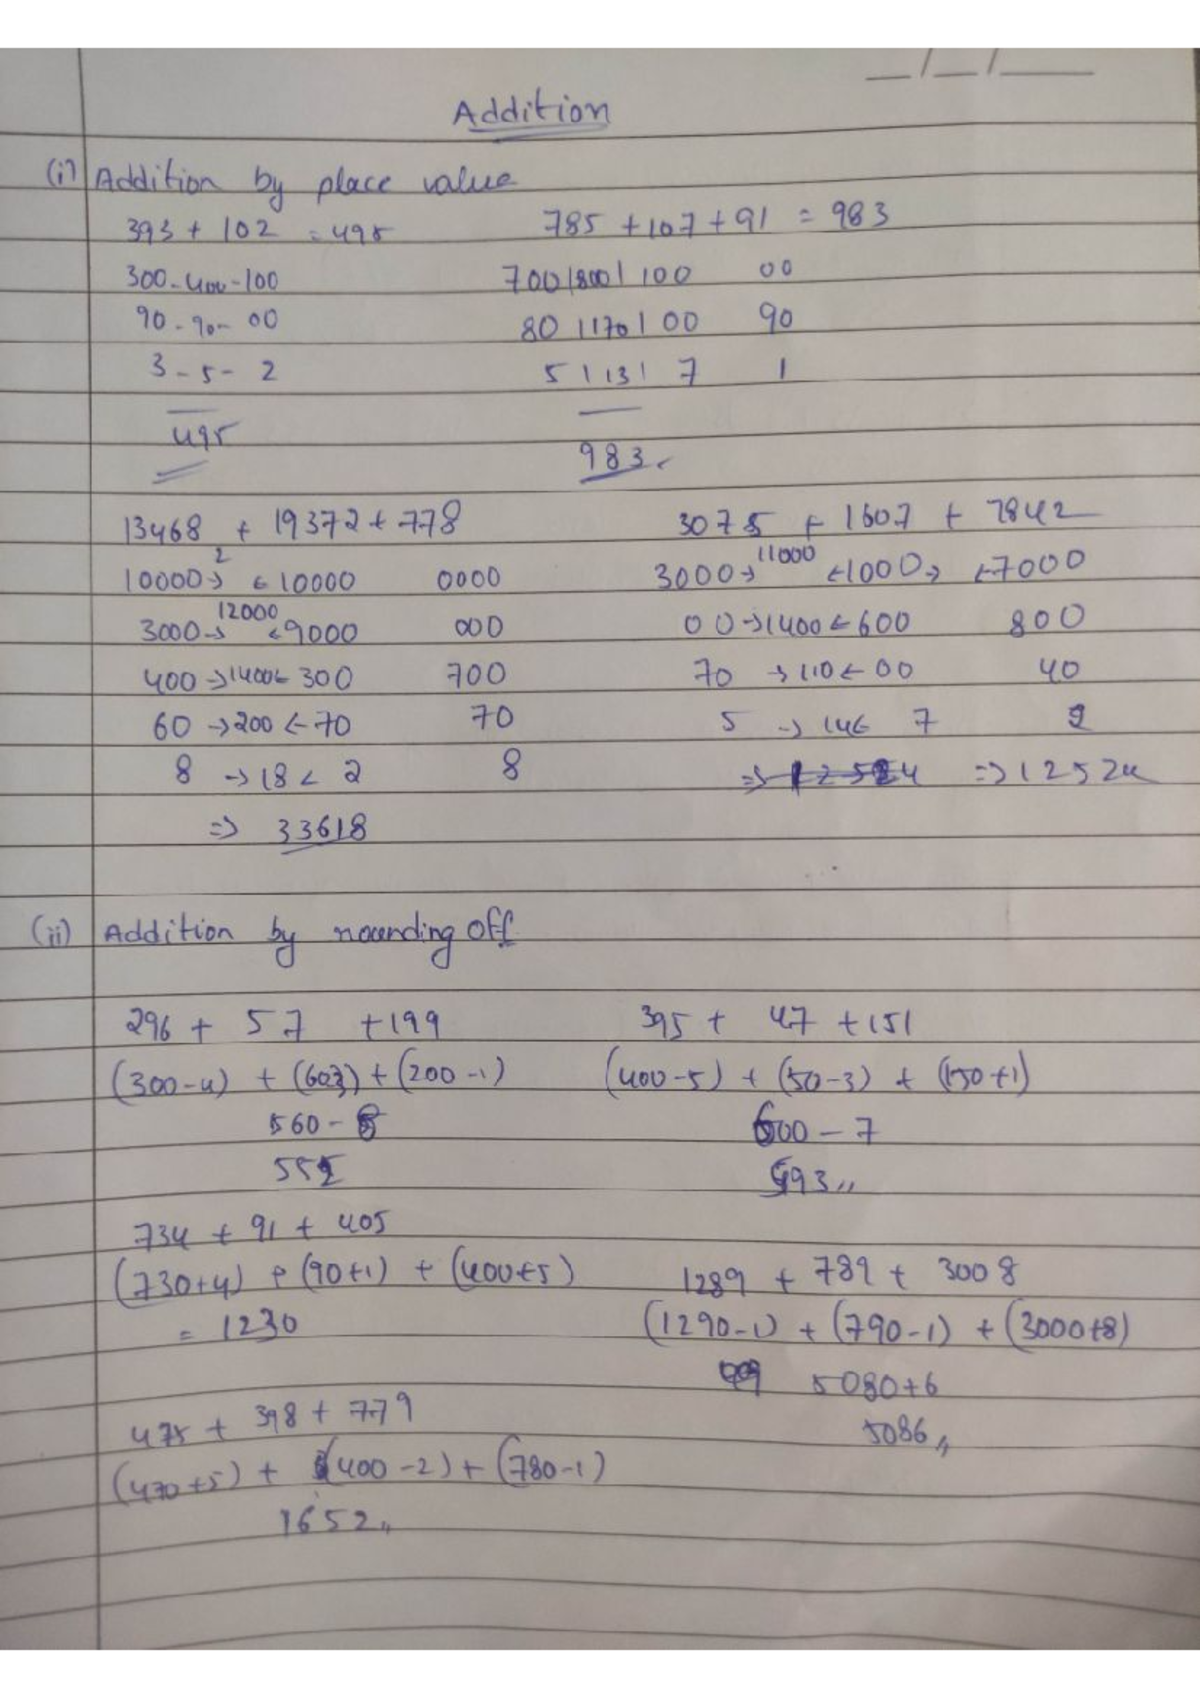 Addition
(i) Addition by place value
393 + 102 = 495
785 + 107 + 91 = 983
300 - 400 - 100
700 | 800 | 100 00
90 - 90 - 00
80 | 170 | 00 90
3 - 5 - 2
5 | 13 | 7 1
495
983
13468 + 19372 + 778
3075 + 1607 + 7842
2
10000 → ← 10000 0000
11000
3000 → ← 1000 → ← 7000
12000
3000 → ← 9000 000
00 → 1400 ← 600 800
400 → 1400 ← 300 700
70 → 110 ← 00 40
60 → 200 ← 70 70
5 → 14 ← 7 2
8 → 18 < 2 8
⇒ 12524 ⇒ 12524
⇒ 33618
(ii) Addition by rounding off
296 + 57 + 199
395 + 47 + 151
(300 - 4) + (603) + (200 - 1)
(400 - 5) + (50 - 3) + (150 + 1)
560 - 8
600 - 7
552
593 ,,
734 + 91 + 405
(730+4) + (90+1) + (400+5)
= 1230
1289 + 789 + 3008
(1290-1) + (790-1) + (3000+8)
5080+6
5086 ,,
475 + 398 + 779
(470+5) + (400-2) + (780-1)
1652 ,,